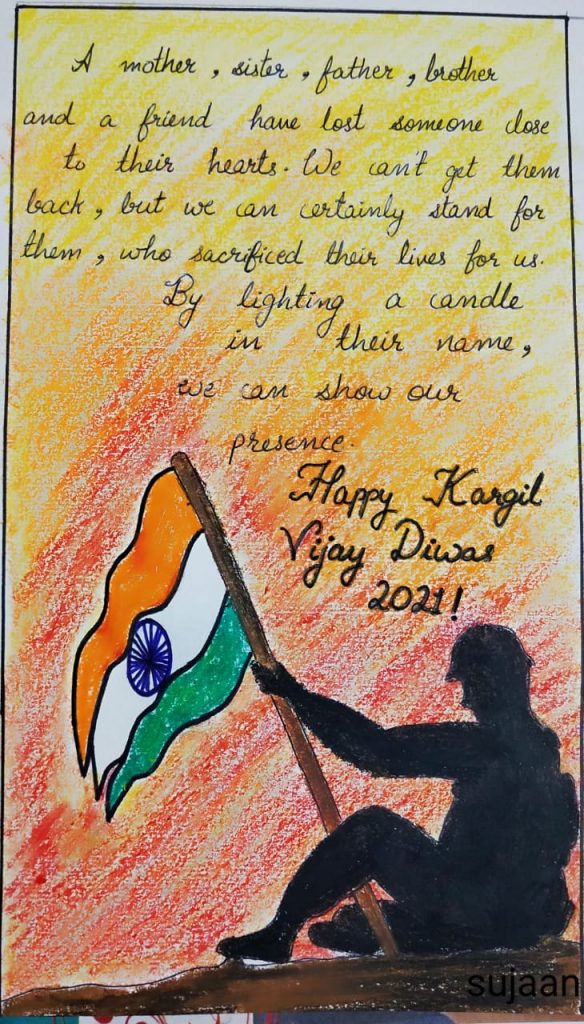 A mother, sister, father, brother
and a friend have lost someone close
to their hearts. We can't get them
back, but we can certainly stand for
them, who sacrificed their lives for us.
By lighting a candle
in their name,
we can show our
presence.
Happy Kargil
Vijay Diwas
2021!
sujaan